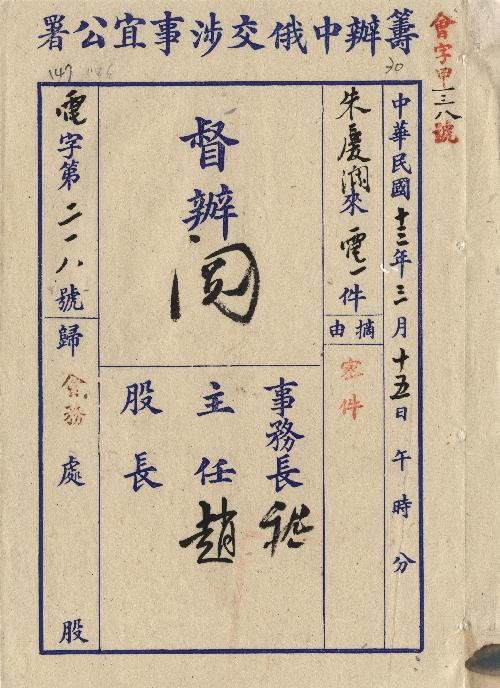 籌辦中俄交涉事宜公署
會字甲一三八號
30
147
中華民國十三年三月十五日午時分
朱慶瀾來電一件
摘由
密件
督辦
閱
事務長
主任 趙
股長
電字第二一八號
歸會務處股